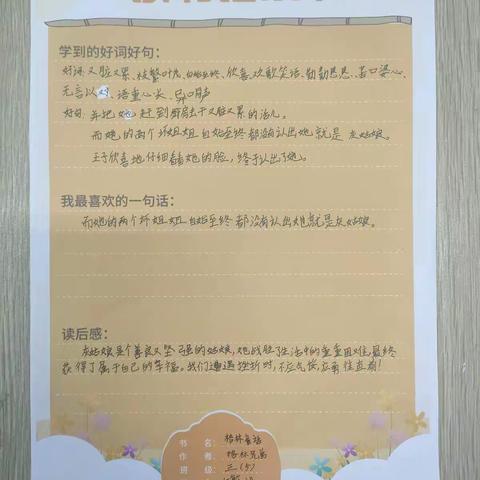 学到的好词好句：
好词 又脏又累、枝繁叶茂、自始至终、欣喜、欢歌笑语、勤勤恳恳、苦口婆心、
无言以对、语重心长、异口同声
好句 并把她赶到厨房去干又脏又累的活儿。
而她的两个坏姐姐自始至终都没有认出她就是灰姑娘。
王子欣喜地仔细看她的脸，终于认出了她。
我最喜欢的一句话：
而她的两个坏姐姐自始至终都没有认出她就是灰姑娘。
读后感：
灰姑娘是个善良又坚强的姑娘，她战胜了生活中的重重困难，最终
获得了属于自己的幸福。我们遭遇挫折时，不应气馁，应勇往直前！
书名：格林童话
作者：格林兄弟
班级：三（5）